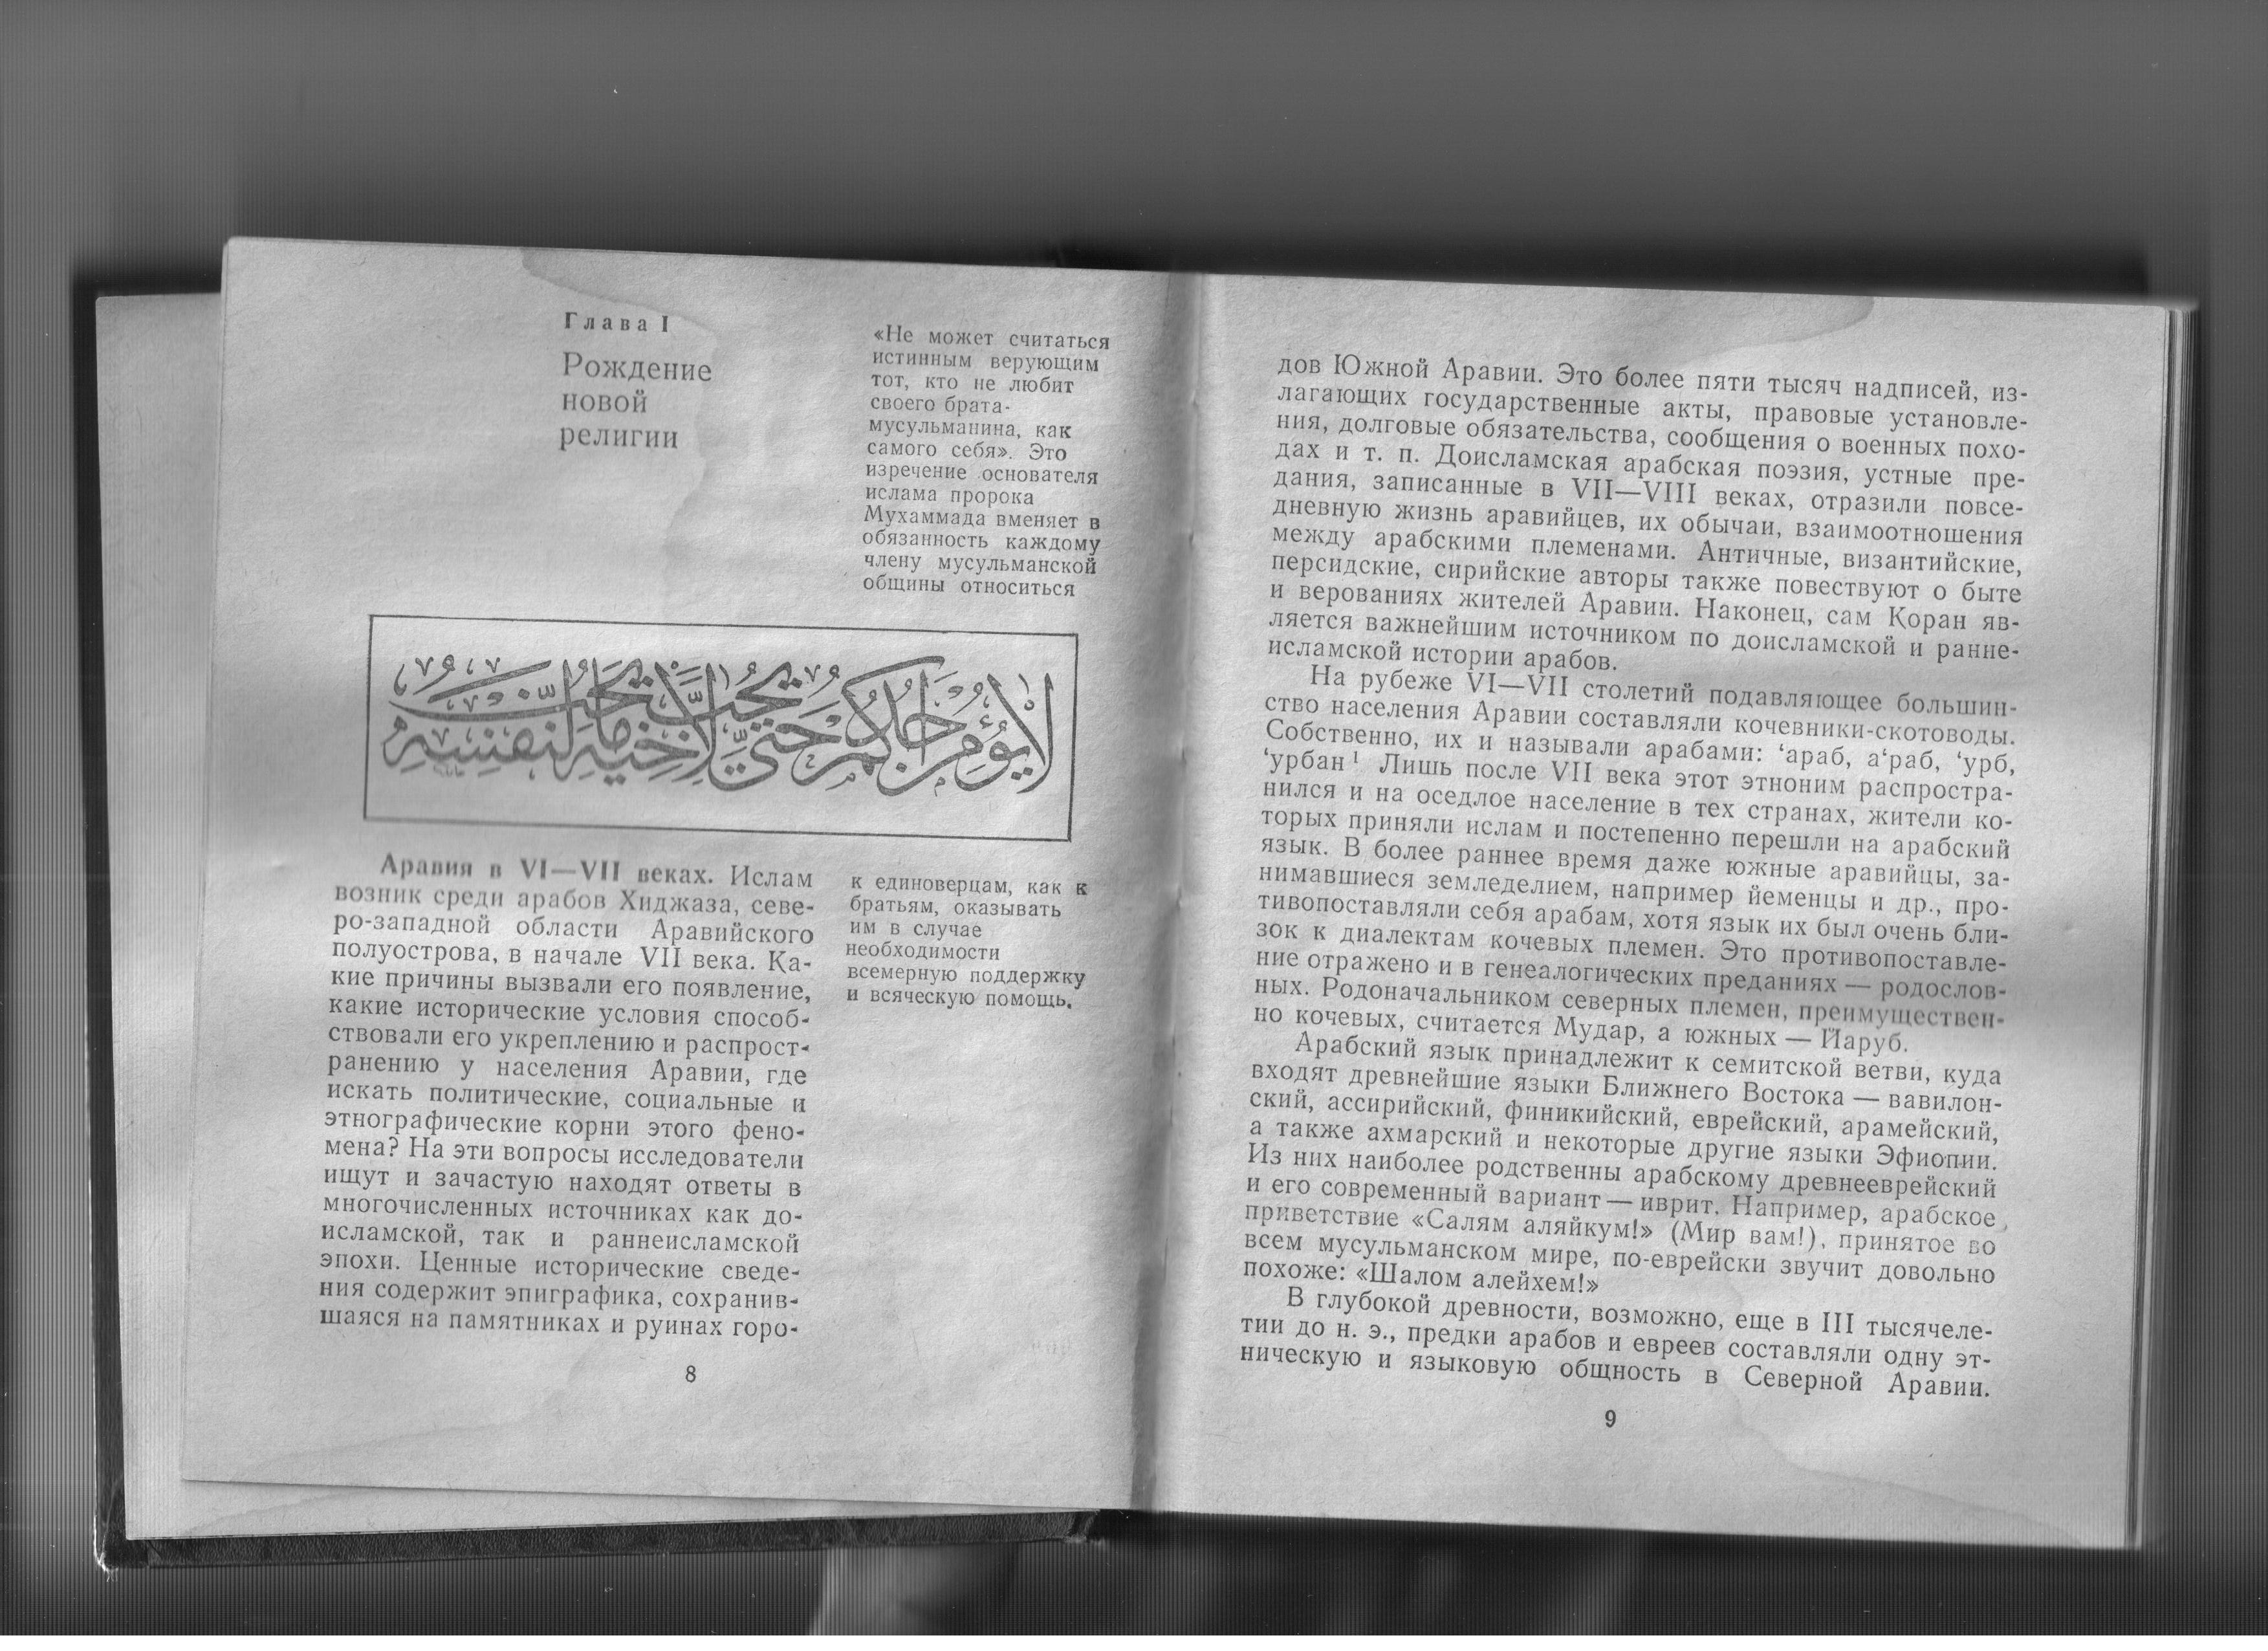 Глава I
Рождение
новой
религии
«Не может считаться
истинным верующим
тот, кто не любит
своего брата-
мусульманина, как
самого себя». Это
изречение основателя
ислама пророка
Мухаммада вменяет в
обязанность каждому
члену мусульманской
общины относиться
لا يؤمن أحدكم حتى يحب لأخيه ما يحب لنفسه
к единоверцам, как к
братьям, оказывать
им в случае
необходимости
всемерную поддержку
и всяческую помощь.
Аравия в VI—VII веках. Ислам
возник среди арабов Хиджаза, севе-
ро-западной области Аравийского
полуострова, в начале VII века. Ка-
кие причины вызвали его появление,
какие исторические условия способ-
ствовали его укреплению и распрост-
ранению у населения Аравии, где
искать политические, социальные и
этнографические корни этого фено-
мена? На эти вопросы исследователи
ищут и зачастую находят ответы в
многочисленных источниках как до-
исламской, так и раннеисламской
эпохи. Ценные исторические сведе-
ния содержит эпиграфика, сохранив-
шаяся на памятниках и руинах горо-
8
дов Южной Аравии. Это более пяти тысяч надписей, из-
лагающих государственные акты, правовые установле-
ния, долговые обязательства, сообщения о военных похо-
дах и т. п. Доисламская арабская поэзия, устные пре-
дания, записанные в VII—VIII веках, отразили повсе-
дневную жизнь аравийцев, их обычаи, взаимоотношения
между арабскими племенами. Античные, византийские,
персидские, сирийские авторы также повествуют о быте
и верованиях жителей Аравии. Наконец, сам Коран яв-
ляется важнейшим источником по доисламской и ранне-
исламской истории арабов.
На рубеже VI—VII столетий подавляющее большин-
ство населения Аравии составляли кочевники-скотоводы.
Собственно, их и называли арабами: ‘араб, а‘раб, ‘урб,
‘урбан¹ Лишь после VII века этот этноним распростра-
нился и на оседлое население в тех странах, жители ко-
торых приняли ислам и постепенно перешли на арабский
язык. В более раннее время даже южные аравийцы, за-
нимавшиеся земледелием, например йеменцы и др., про-
тивопоставляли себя арабам, хотя язык их был очень бли-
зок к диалектам кочевых племен. Это противопоставле-
ние отражено и в генеалогических преданиях — родослов-
ных. Родоначальником северных племен, преимуществен-
но кочевых, считается Мудар, а южных — Йаруб.
Арабский язык принадлежит к семитской ветви, куда
входят древнейшие языки Ближнего Востока — вавилон-
ский, ассирийский, финикийский, еврейский, арамейский,
а также ахмарский и некоторые другие языки Эфиопии.
Из них наиболее родственны арабскому древнееврейский
и его современный вариант — иврит. Например, арабское
приветствие «Салям аляйкум!» (Мир вам!), принятое во
всем мусульманском мире, по-еврейски звучит довольно
похоже: «Шалом алейхем!»
В глубокой древности, возможно, еще в III тысячеле-
тии до н. э., предки арабов и евреев составляли одну эт-
ническую и языковую общность в Северной Аравии.
9